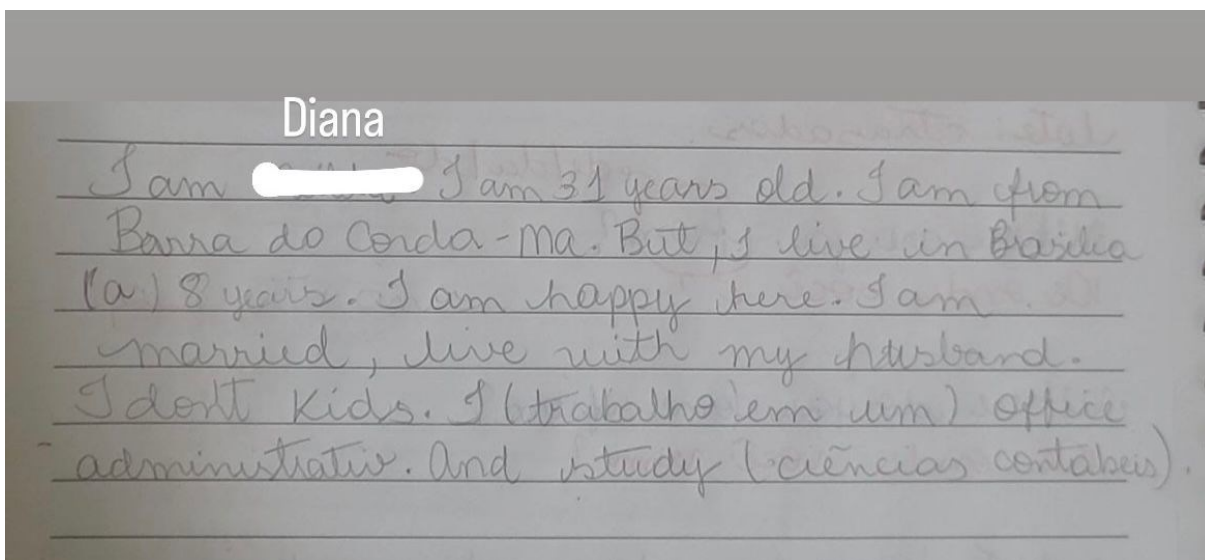 Diana
I am I am 31 years old. I am from
Barra do Corda-Ma. But, I live in Brasilia
(a) 8 years. I am happy here. I am
married, live with my husband.
I dont Kids. I (trabalho em um) office
administrativ. And study (ciências contábeis).